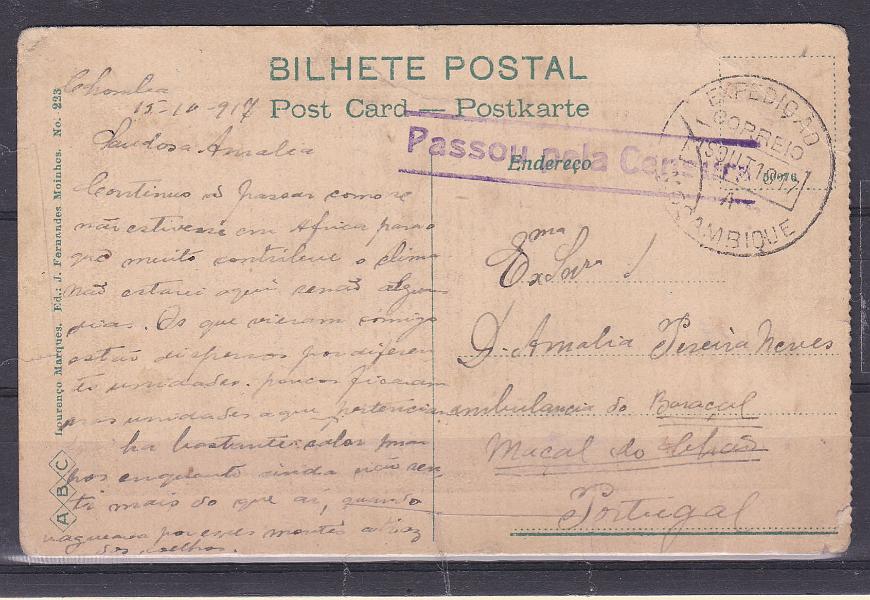 BILHETE POSTAL
Post Card — Postkarte
Endereço
Passou pela Censura
EXPEDIÇÃO
CORREIO
OUT 1917
MOÇAMBIQUE
15-10-917
Saudosa Amalia
Continuo a passar como se
não estivesse em Africa para o
que muito contribue o clima
não estarei aqui senão alguns
dias. Os que vieram comigo
estão dispersos por diferen
tes unidades. poucos ficaram
nas unidades a que pertenciam
ha bastante calor mas
por enquanto ainda não sen
ti mais do que aí, quando
vagueava por esses montes atraz
dos coelhos.
Exma Snra
D. Amalia Pereira Neves
ambulancia do Baraçal
Maçal do Chão
Portugal
Lourenço Marques. Ed.: J. Fernandes Moinhos. No. 223
A B C